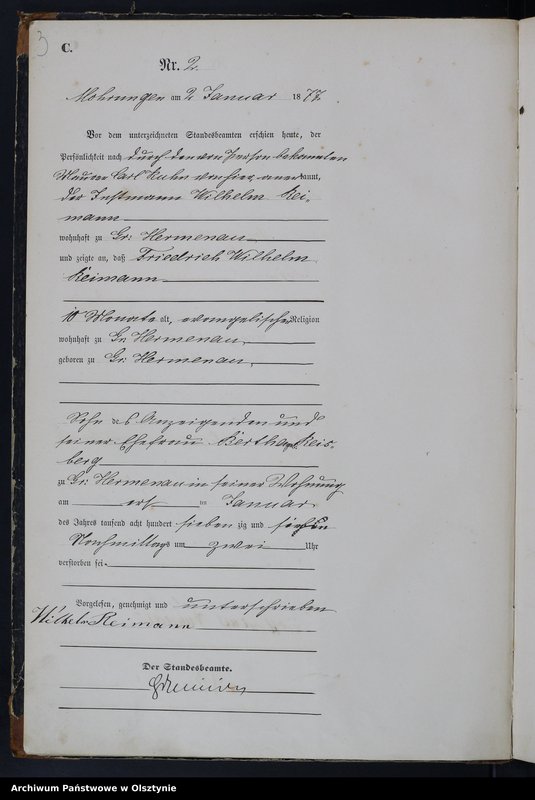 3
C.
Nr. 2.
Mohrungen am 2 Januar 1877.
Vor dem unterzeichneten Standesbeamten erschien heute, der
Persönlichkeit nach durch den von Person bekannten
Maurer Carl Kuhn von hier anerkannt,
der Instmann Wilhelm Rei-
mann
wohnhaft zu Gr: Hermenau
und zeigte an, daß Friedrich Wilhelm
Reimann
10 Monate alt, evangelischer Religion
wohnhaft zu Gr: Hermenau,
geboren zu Gr: Hermenau,
Sohn des Anzeigenden und
seiner Ehefrau Bertha geb. Reis-
berg
zu Gr: Hermenau in seiner Wohnung
am ersten Januar
des Jahres tausend acht hundert siebenzig und sieben
Nachmittags um zwei Uhr
verstorben sei.
Vorgelesen, genehmigt und unterschrieben
Wilhelm Reimann
Der Standesbeamte.
Archiwum Państwowe w Olsztynie